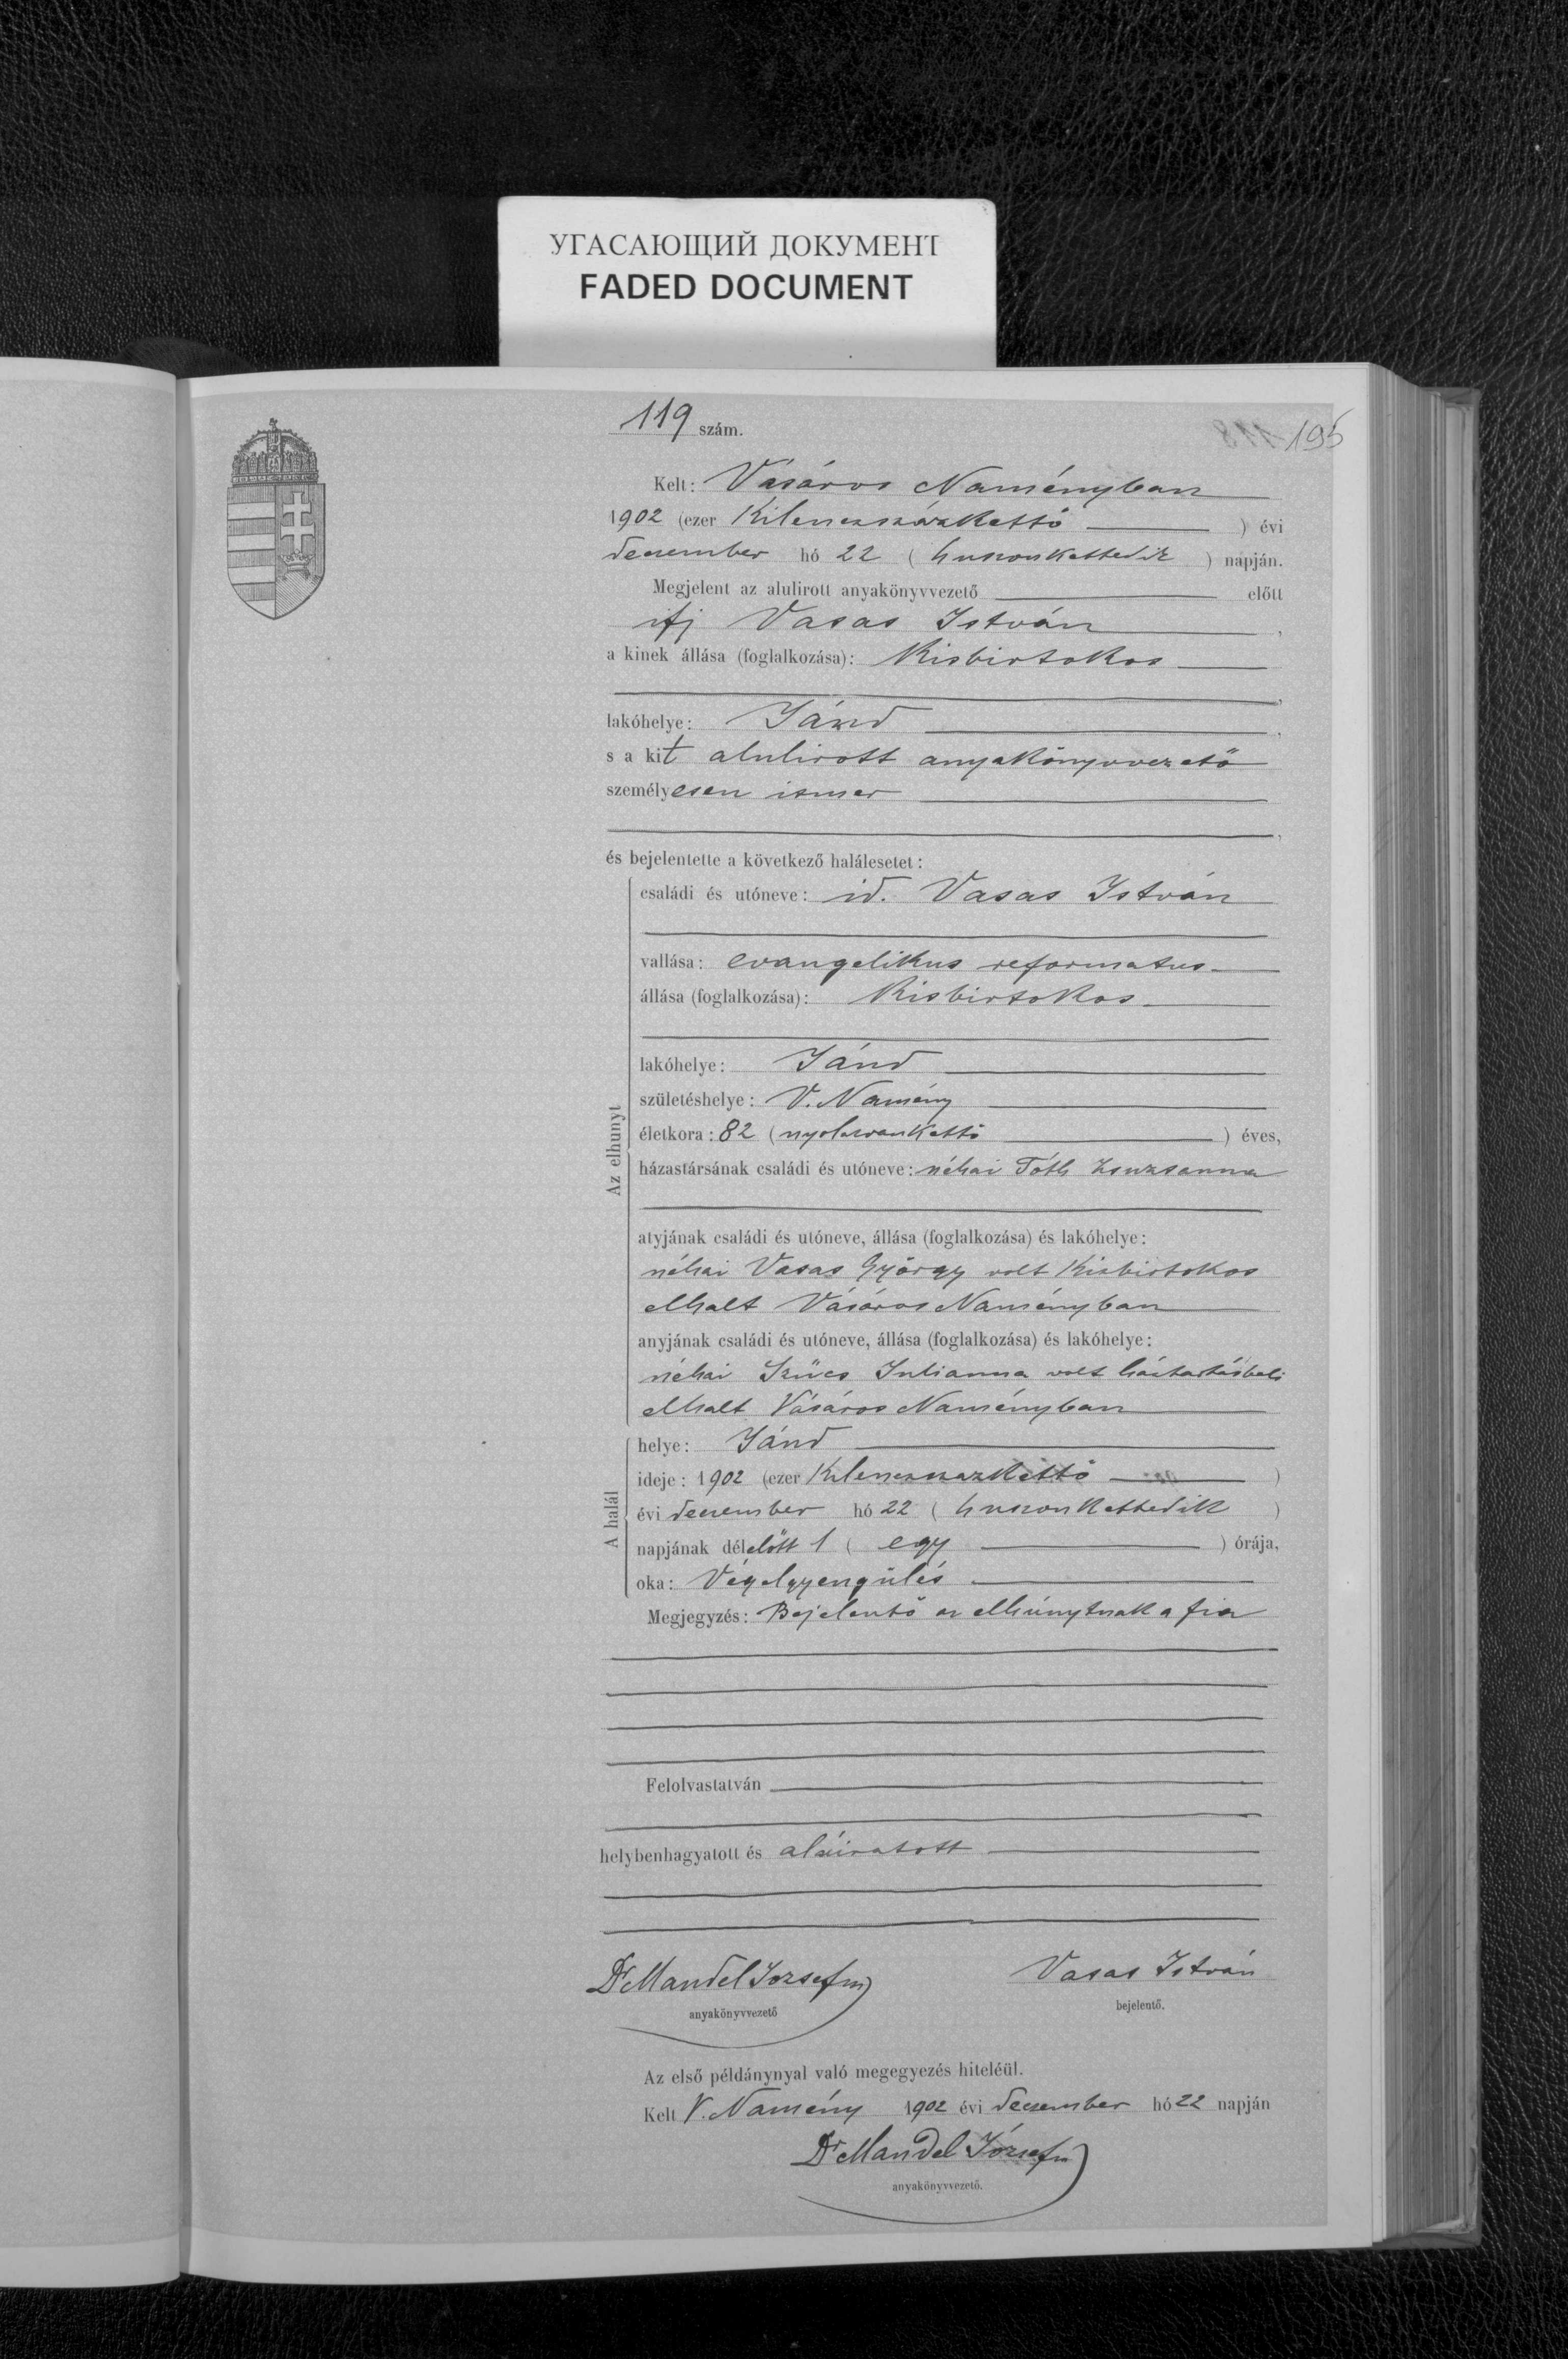 УГАСАЮЩИЙ ДОКУМЕНТ
FADED DOCUMENT
119 szám.
195
Kelt: Vásáros Naményban
1902 (ezer kilenczszázkettő ) évi
deczember hó 22 ( huszonkettedik ) napján.
Megjelent az alulirott anyakönyvvezető előtt
ifj Vasas István ,
a kinek állása (foglalkozása): kisbirtokos
,
lakóhelye: Jánd ,
s a kit alulirott anyakönyvvezető
személyesen ismer
,
és bejelentette a következő halálesetet:
Az elhunyt
családi és utóneve: id. Vasas István
vallása: evangelikus reformatus
állása (foglalkozása): kisbirtokos
lakóhelye: Jánd
születéshelye: V. Namény
életkora: 82 (nyolczvankettő ) éves,
házastársának családi és utóneve: néhai Tóth Zsuzsanna
atyjának családi és utóneve, állása (foglalkozása) és lakóhelye:
néhai Vasas György volt kisbirtokos
elhalt Vásáros Naményban
anyjának családi és utóneve, állása (foglalkozása) és lakóhelye:
néhai Szűcs Julianna volt háztartásbeli
elhalt Vásáros Naményban
A halál
helye: Jánd
ideje: 1902 (ezer kilenczszázkettő )
évi deczember hó 22 ( huszonkettedik )
napjának délelőtt 1 ( egy ) órája,
oka: Végelgyengülés
Megjegyzés: Bejelentő az elhúnytnak a fia
Felolvastatván
helybenhagyatott és aláiratott
Dr Mandel József
Vasas István
anyakönyvvezető
bejelentő.
Az első példánynyal való megegyezés hiteléül.
Kelt V. Namény 1902 évi deczember hó 22 napján
Dr Mandel József
anyakönyvvezető.